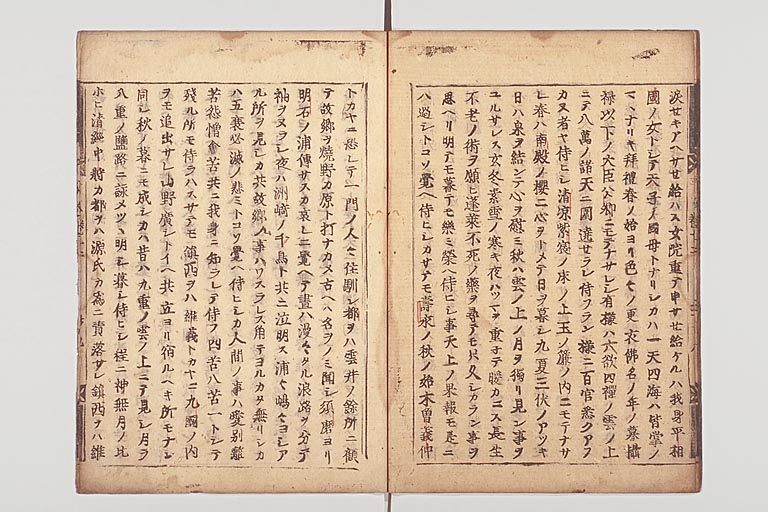 涙せキアヘサせ給ハス女院重テ申サせ給ケルハ我身平相
國ノ女トシテ天子ノ國母トナリシカハ一天四海ハ皆掌ノ
マヽナリキ拜禮春ノ始ヨリ色々ノ更衣佛名ノ年ノ暮攝
禄以下ノ大臣公卿ニモテナサレシ有様ハ六欲四禪ノ雲ノ上
ニテ八萬ノ諸天ニ圍遶せラレ侍フラン様ニ百官悉クアフ
カヌ者ヤ侍ヒシ清凉紫宸ノ床ノ上玉ノ簾ノ内ニモテナサ
レ春ハ南殿ノ櫻ニ心ヲトメテ日ヲ暮シ九夏三伏ノアツキ
日ハ泉ヲ結ンテ心ヲ慰ミ秋ハ雲ノ上ノ月ヲ獨リ見ン事ヲ
ユルサレス玄冬素雪ノ寒キ夜ハツマヲ重子テ暖カニス長生
不老ノ術ヲ願ヒ蓬莱不死ノ藥ヲ尋テモ只久シカラン事ヲ
思ヘリ明テモ暮テモ樂ミ榮ヘ侍ヒシ事天上ノ果報モ是ニ
ハ過シトコソ覺ヘ侍ヒシカサテモ壽永ノ秋ノ始木曽義仲
トカヤニ恐レテ一門ノ人々住馴シ都ヲハ雲井ノ餘所ニ顧
テ故郷ヲ燒野カ原ト打ナカメ古ヘハ名ヲノミ聞シ須磨ヨリ
明石ノ浦傳サスカ哀レニ覺ヘテ晝ハ漫々タル浪路ヲ分テ
袖ヲヌラシ夜ハ洲崎ノ千鳥ト共ニ泣明ス浦々嶋々ヨシア
ル所ヲ見シカ共故郷ノ事ハワスラレス角テヨルカタ無リシカ
ハ五衰必滅ノ悲ミトコソ覺ヘ侍ヒシカ人間ノ事ハ愛別離
苦怨憎會苦共ニ我身ニ知ラレテ侍フ四苦八苦一トシテ
殘ル所モ侍ラハスサテモ鎮西ヲハ維義トカヤニ九國ノ内
ヲモ追出サレ山野廣シトイヘ共立ヨリ宿ルヘキ所モナシ
同シ秋ノ暮ニモ成シカハ昔ハ九重ノ雲ノ上ニテ見シ月ヲ
八重ノ鹽路ニ詠メツヽ明シ暮シ侍ヒシ程ニ神無月ノ比
ホヒ清經中將カ都ヲハ源氏カ為ニ責落サレ鎮西ヲハ維